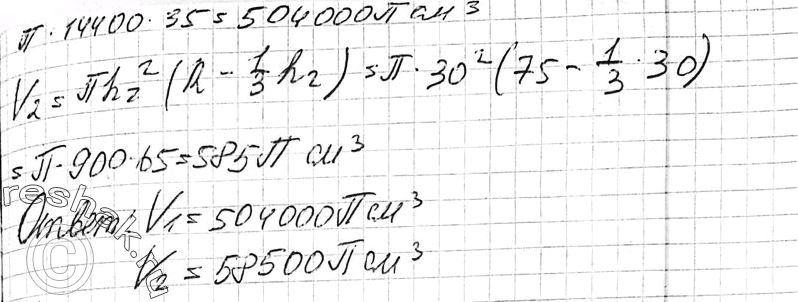 π · 14400 · 35 = 504000π см³
V₂ = πh₂² (R - 1/3 h₂) = π · 30² (75 - 1/3 · 30)
= π · 900 · 65 = 585π см³
Ответ: V₁ = 504000π см³
V₂ = 58500π см³